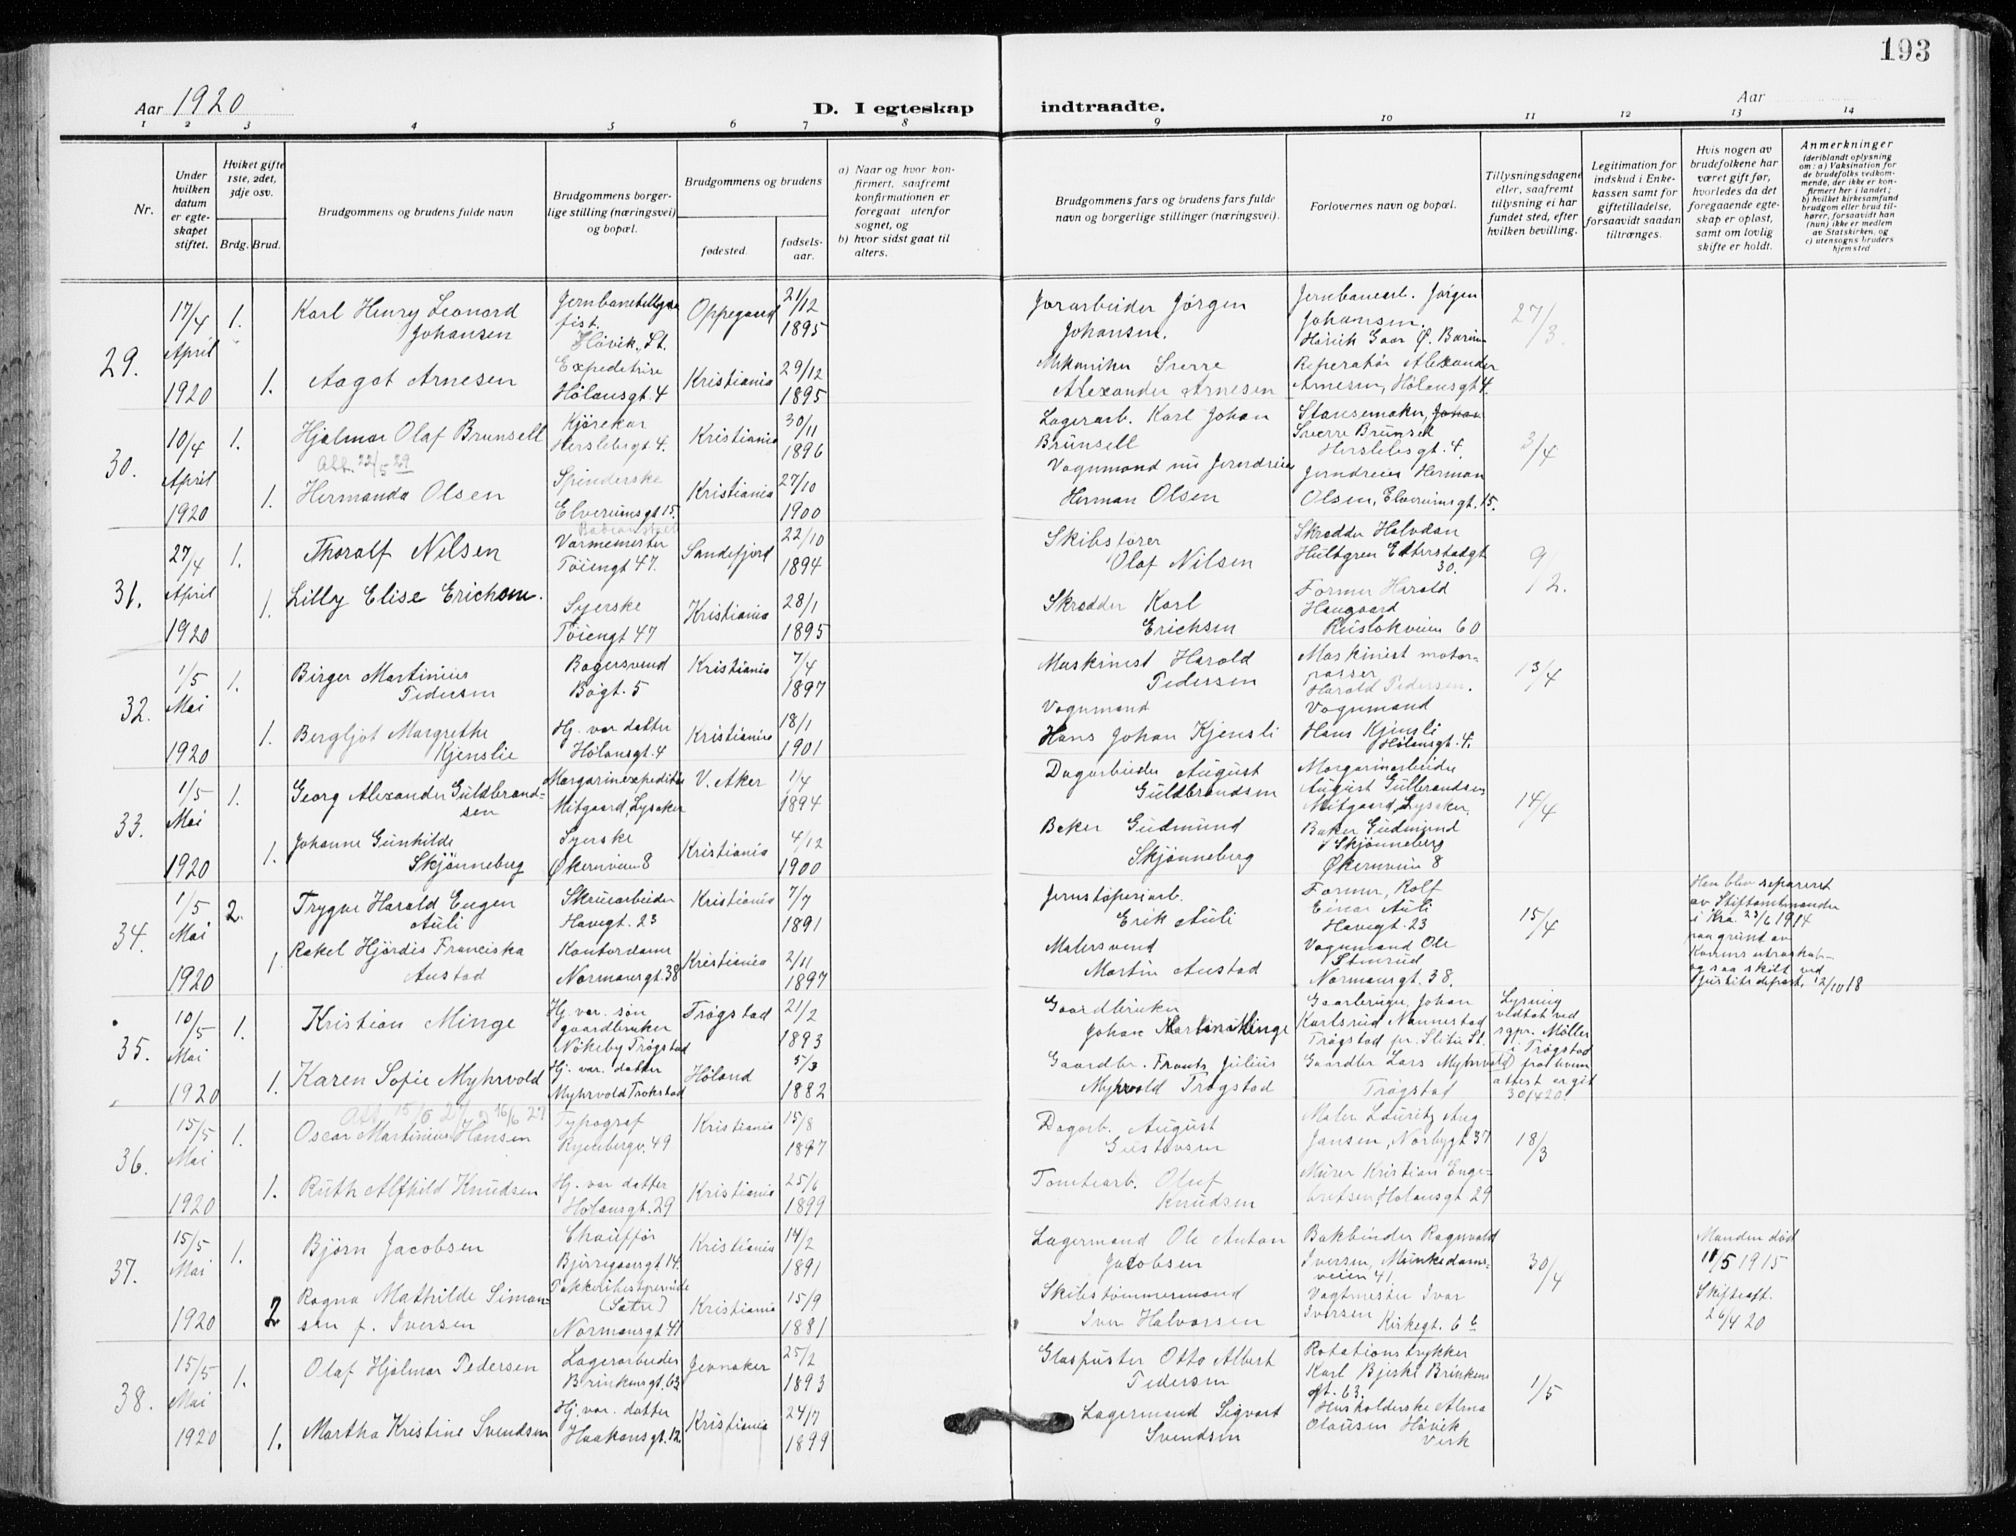 193
Aar 1920
D. I egteskap indtraadte.
Aar
1 2 3 4 5 6 7 8 9 10 11 12 13 14
Nr.
Under hvilken datum er egteskapet stiftet.
Hvilket gifte 1ste, 2det, 3dje osv.
Brdg. Brud.
Brudgommens og brudens fulde navn
Brudgommens borgerlige stilling (næringsvei) og bopæl.
Brudgommens og brudens
fødested.
fødselsaar.
a) Naar og hvor konfirmert, saafremt konfirmationen er foregaat utenfor sognet, og
b) hvor sidst gaat til alters.
Brudgommens fars og brudens fars fulde navn og borgerlige stillinger (næringsvei).
Forlovernes navn og bopæl.
Tillysningsdagene eller, saafremt tillysning ei har fundet sted, efter hvilken bevilling.
Legitimation for indskud i Enkekassen samt for giftetilladelse, forsaavidt saadan tiltrænges.
Hvis nogen av brudefolkene har været gift før, hvorledes da det foregaaende egteskap er opløst, samt om lovlig skifte er holdt.
Anmerkninger
(deriblandt oplysning om: a) Vaksination for de brudefolks vedkommende, der ikke er konfirmert her i landet; b) hvilket kirkesamfund brudgom eller brud tilhører, forsaavidt han (hun) ikke er medlem av Statskirken, og c) utensogns bruders hjemsted
29.
17/4 April 1920
1.
Karl Henry Leonard Johansen
Høvik St.
Oppegaard
21/12 1895
Jorarbeider Jørgen Johansen.
Jernbanearb. Jørgen Johansen.
27/3.
1.
Aagot Arnesen
Expeditrise Hølansgt. 4
Kristiania
29/12 1895
Mekaniker Sverre Alexander Arnesen
Reperatør Alexander Arnesen, Hølansgt 4.
30.
10/4 April 1920
1.
Hjalmar Olaf Brunsell
Att. 22/5 29
Kjørekar Herslebsgt 4.
Kristiania
30/11 1896
Lagerarb. Karl Johan Brunsell
Stansemaker, Johan Sverre Brunsel Herslebsgt. 4.
3/4
1.
Hermanda Olsen
Spinderske Elverumsgt 15.
Kristiania
27/10 1900
Herman Olsen
Jerndreier Herman Olsen, Elverumsgt. 15.
31.
27/4 April 1920
1.
Thoralf Nilsen
Varmemester Tøiengt 47.
Sandefjord
22/10 1894
Skibsfører Olaf Nilsen
Skrædder Halvdan Hultgren Etterstadgt 30.
9/12.
1.
Lilly Elise Erichsen.
Syerske Tøiengt 47
Kristiania
28/1 1895
Skrædder Karl Erichsen
Former Harald Haugaard Rusløkveien 60
32.
1/5 Mai 1920
1.
Birger Martinius Pedersen
Bagersvend Bøgt. 5
Kristiania
7/4 1897
Maskinist Harald Pedersen
Maskinist motorpasser Harald Pedersen.
13/4
1.
Bergljot Margrethe Kjenslie
Hj. vær. datter Hølansgt. 4
Kristiania
18/1 1901
Vognmand Hans Johan Kjensli
Vognmand Hans Kjensli Hølansgt. 4.
33.
1/5 Mai 1920
1.
Georg Alexander Guldbrandsen
Margarinexpeditør Mitgaard, Lysaker
V. Aker
1/4 1894
Dagarbeider August Guldbrandsen
Margarinarbeider August Gullbrandsen Mitgaard, Lysaker.
14/4
1.
Johanne Gunhilde Skjønneberg
Syerske Økernveien 8
Kristiania
4/12 1900
Baker Gudmund Skjønneberg
Baker Gudmund Skjønneberg Økernveien 8
34.
1/5 Mai 1920
2.
Trygve Harald Eugen Auli
Skruearbeider Havegt. 23
Kristiania
7/7 1891
Jernstøperiarb. Erik Auli
Former, Rolf Einar Auli Havegt. 23
15/4
Han blev separeret av Stiftamtmanden i Kra. 23/6 1914 paa grund av Konens utroskab og saa skilt ved Justitsdepart. 12/10 18
1.
Rakel Hjørdis Franciska Austad
Kontordame Normansgt. 38
Kristiania
2/11 1897
Malersvend Martin Austad
Vognmand Ole Stenrud Normansgt. 38.
35.
10/5 Mai 1920
1.
Kristian Minge
Hj. vær. søn gaardbruker Nøkeby Trøgstad
Trøgstad
21/2 1893
Gaardbruker Johan Martin Minge
Gaarbruger, Johan Karlsrud Nannestad Trøgstad pr. Slitu St.
Lysning vidtat ved sgpr. Møller i Trøgstad fra hvem attest er git 30/4 20
1.
Karen Sofie Myhrvold
Hj. vær. datter Myhrvold Trøkstad
Høland
5/3 1882
Gaardbr. Frants Julius Myhrvold Trøgstad
Gaardbr Lars Myhrvold Trøgstad
36.
15/5 Mai 1920
1.
Att. 15/6 27 16/6 27
Oscar Martinius Hansen
Typograf Ryenbergv. 49
Kristiania
15/8 1897
Dagarb. August Gustavsen
Maler Lauritz Aug Jansen, Norbygt 37
18/3
1.
Ruth Alfhild Knudsen
Hj. vær datter Hølansgt. 29
Kristiania
25/6 1899
Tomtearb. Oluf Knudsen
Murer Kristian Engebretsen, Hølansgt 29
37.
15/5 Mai 1920
1.
Bjørn Jacobsen
Chauffør
Kristiania
14/2 1891
Lagermand Ole Anton Jacobsen
Bokbinder Ragnvald Iversen, Munkedamsveien 41.
30/4
Manden død 11/5 1915 Skifteatt. 26/4 20
2
Ragna Mathilde Simonsen f. Iversen
Pakkeribestyrerinde (Sætre) Normansgt 41
Kristiania
15/9 1881
Skibstømmermand Iver Halvorsen
Vagtmester Ivar Iversen Kirkegt. 6 b
38.
15/5 Mai 1920
1.
Olaf Hjalmar Pedersen
Lagerarbeider Brinkensgt. 63
Jevnaker
25/2 1893
Glaspuster Otto Albert Pedersen
Rotationstrykker Karl Bjerke Brinkens gt. 63.
1/5
1.
Martha Kristine Svendsen
Hj. vær. datter Haakonsgt. 12
Kristiania
24/7 1899
Lagermand Sigvart Svendsen
Husholderske Alma Olausen Høvik Verk